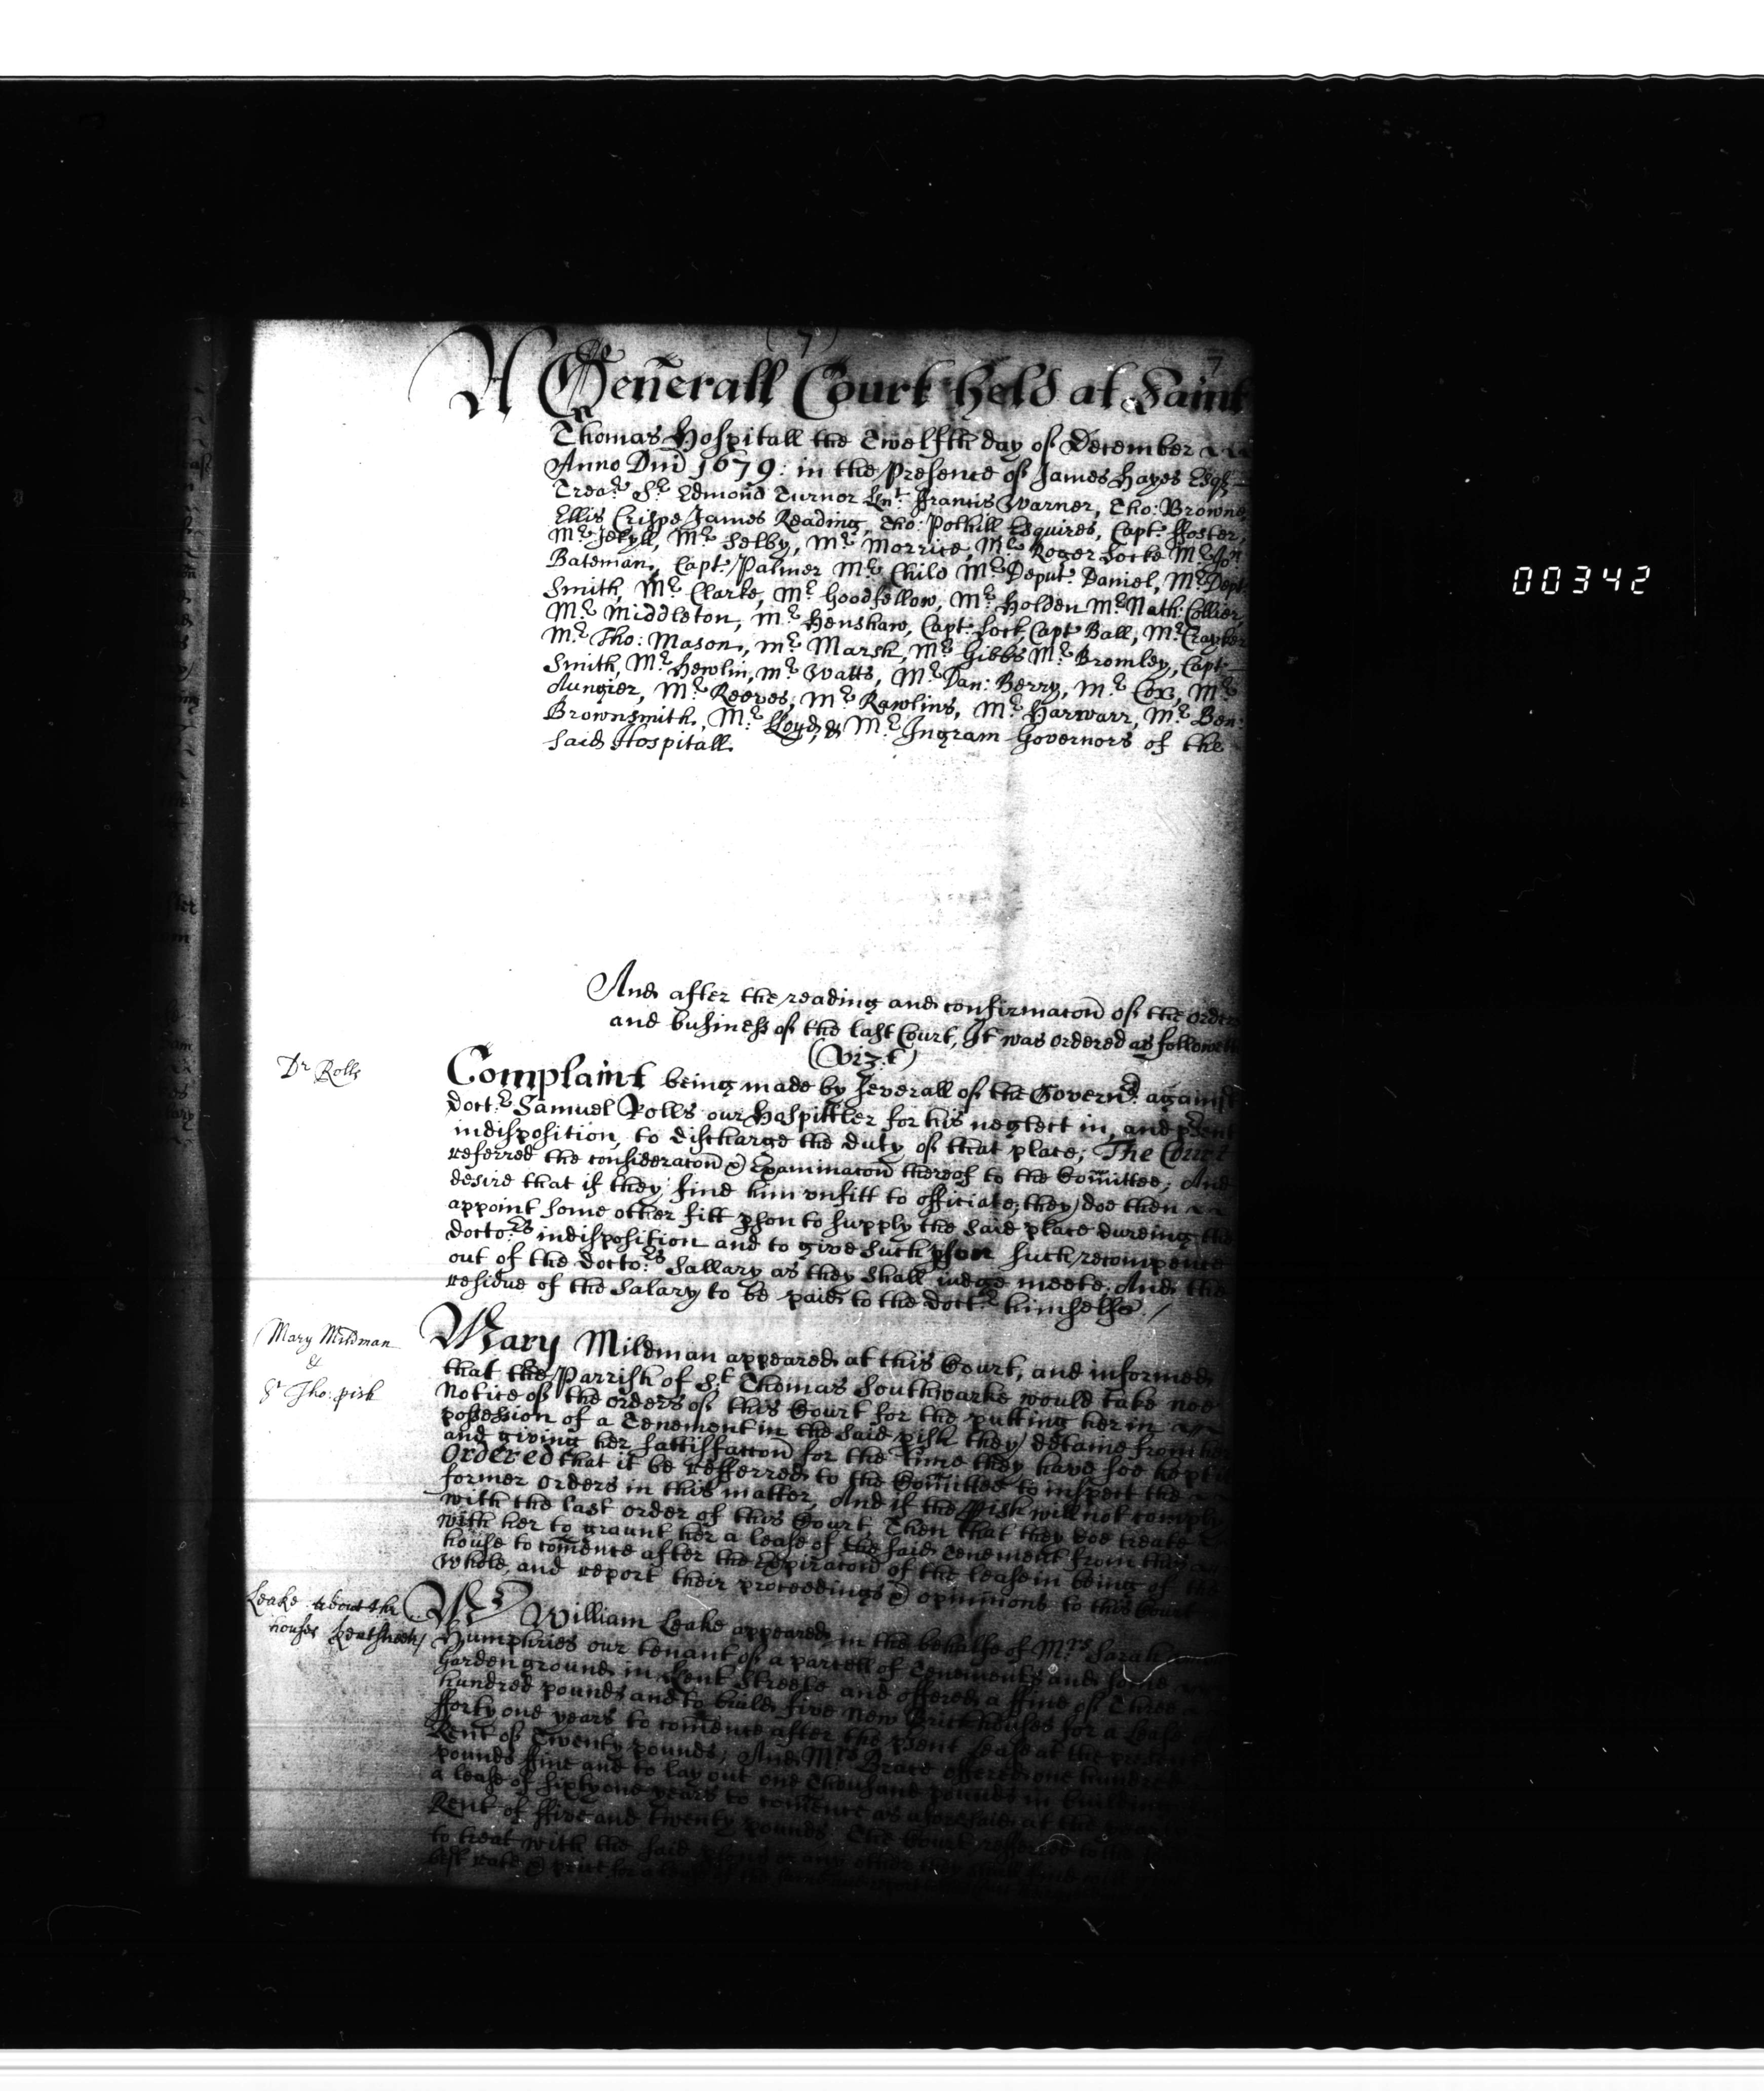 (7)
7
A Generall Court held at Saint
Thomas Hospitall the Twelfth day of December
Anno Dni 1679: in the Presence of James Hayes Esqr
Trear. Sr. Edmond Turnor Knt. Francis Warner, Tho: Browne,
Ellis Crispe James Reading, Tho: Polhill Esquires, Capt. ffoster,
Mr. Jekyll, Mr. Selby, Mr. Morrice, Mr. Roger Locke Mr. Jon.
Bateman, Capt. Palmer Mr. Child Mr. Deput. Daniel, Mr. Dept.
Smith, Mr. Clarke, Mr. Goodfellow, Mr. Holden Mr. Nath: Collier,
Mr. Middleton, Mr. Henshaw, Capt. Lock, Capt. Ball, Mr.
Mr. Tho: Mason, Mr. Marsh, Mr. Gibbs Mr. Bromley, Capt.
Smith, Mr. Hewlin, Mr. Watts, Mr. Dan: Berry, Mr. Cox, Mr.
Aungier, Mr. Reeves, Mr. Rawlins, Mr. Harwarr, Mr. Ben:
Brownsmith, Mr. Lloyd, & Mr. Ingram Governors of the
said Hospitall.
And after the reading and confirmacon of the orders
and business of the last Court, It was ordered as followeth
(vizt.)
Dr Rolls
Complaint being made by severall of the Governrs. against
doctr. Samuel Rolls our Hospittler for his neglect in, and psent
indisposition, to discharge the duty of that place; The Court
referred the consideracon & Examinacon thereof to the Comittee; And
desire that if they find him unfitt to officiate, they doe then
appoint some other fitt pson to supply the said place dureing the
doctors. indisposition and to give such pson such recompence
out of the doctors. Sallary as they shall iudge meete, And the
residue of the Salary to be paid to the doctr. himselfe. /
Mary Mildman
&
St. Tho: pish
Mary Mildman appeared at this Court, and informed
that the Parrish of St. Thomas Southwarke would take noe
Notice of the orders of this Court for the putting her in
possession of a Tenement in the said pish they detaine from her
and giving her sattisfaccon for the time they have soe kept it
Ordered that it be refferred to the Comittee to inspect the
former orders in this matter, And if the pish will not comply
with the last order of this Court, Then that they doe treate
with her to graunt her a lease of the said Tenement from the
house to comence after the Expiracon of the lease in being of the
whole, and report their proceedings & opinions to this Court
Leake about the
houses Kentstreet
Mr William Leake appeared in the behalfe of Mrs Sarah
Humphries our tenant of a parcell of Tenements and some
Garden ground in Kent Streete and offered a ffine of Three
hundred pounds and to build five new Brick houses for a Lease
fforty one years to comence after the psent lease at the present
Rent of Twenty pounds; And Mrs Brace offered one hundred
pounds ffine and to lay out one Thousand pounds in building
a lease of sixty one years to comence as aforesaid at the
Rent of ffive and twenty pounds. The Court refferred to the
to treat with the said psons or any other they shall find will
best rate & price for a lease of the
00342